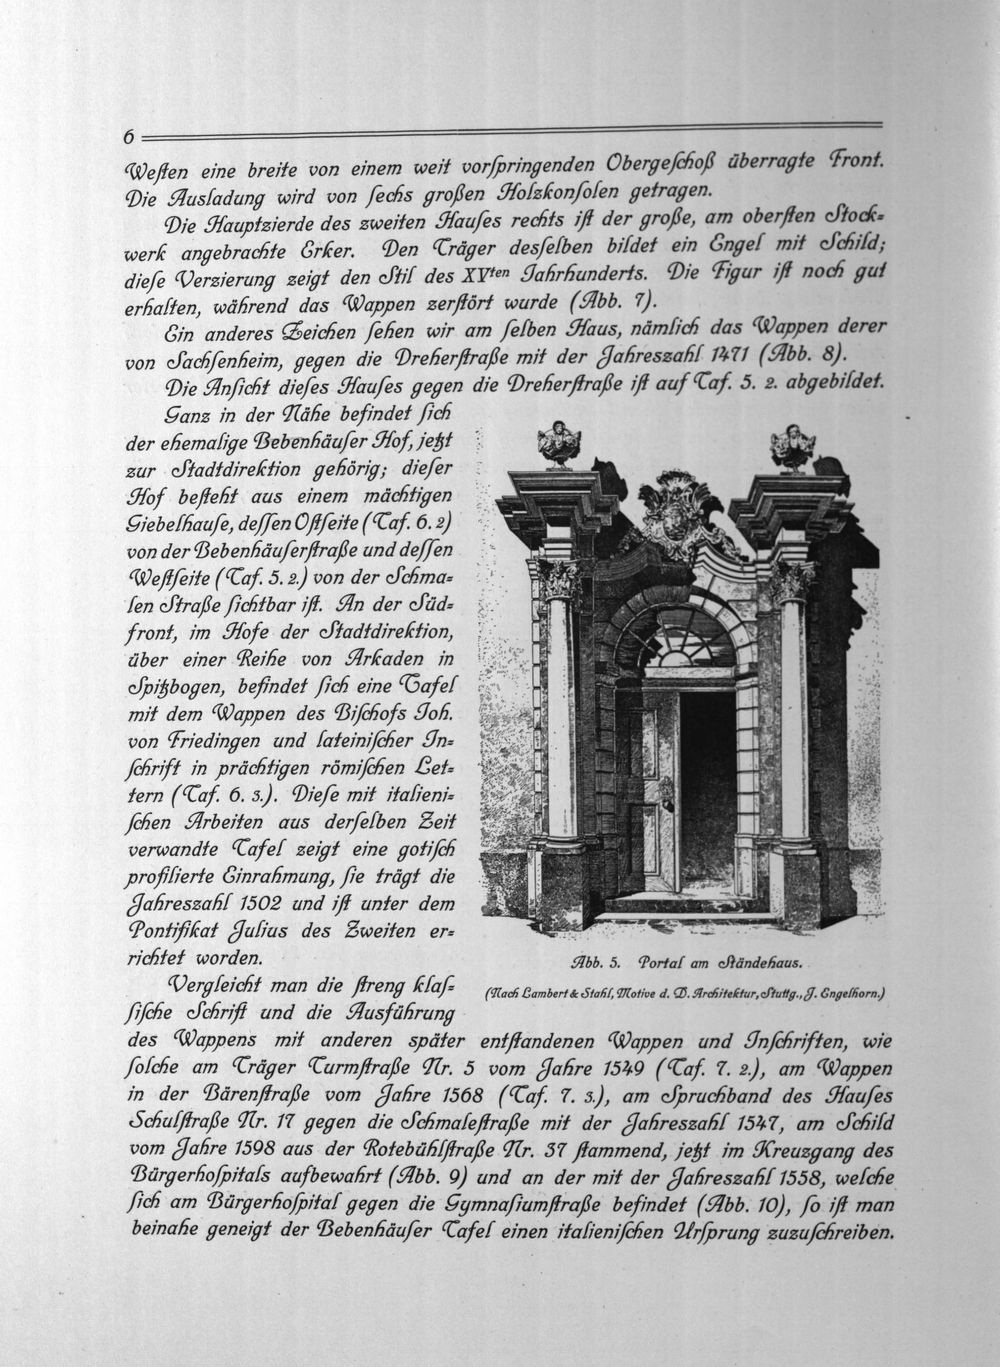 6
Weſten eine breite von einem weit vorſpringenden Obergeſchoß überragte Front.
Die Ausladung wird von ſechs großen Holzkonſolen getragen.
Die Hauptzierde des zweiten Hauſes rechts iſt der große, am oberſten Stock=
werk angebrachte Erker. Den Träger desſelben bildet ein Engel mit Schild;
dieſe Verzierung zeigt den Stil des XVten Jahrhunderts. Die Figur iſt noch gut
erhalten, während das Wappen zerſtört wurde (Abb. 7).
Ein anderes Zeichen ſehen wir am ſelben Haus, nämlich das Wappen derer
von Sachſenheim, gegen die Dreherſtraße mit der Jahreszahl 1471 (Abb. 8).
Die Anſicht dieſes Hauſes gegen die Dreherſtraße iſt auf Taf. 5. 2. abgebildet.
Ganz in der Nähe befindet ſich
der ehemalige Bebenhäuſer Hof, jetzt
zur Stadtdirektion gehörig; dieſer
Hof beſteht aus einem mächtigen
Giebelhauſe, deſſen Oſtſeite (Taf. 6. 2)
von der Bebenhäuſerſtraße und deſſen
Weſtſeite (Taf. 5. 2.) von der Schma=
len Straße ſichtbar iſt. An der Süd=
front, im Hofe der Stadtdirektion,
über einer Reihe von Arkaden in
Spitzbogen, befindet ſich eine Tafel
mit dem Wappen des Biſchofs Joh.
von Friedingen und lateiniſcher In=
ſchrift in prächtigen römiſchen Let=
tern (Taf. 6. 3.). Dieſe mit italieni=
ſchen Arbeiten aus derſelben Zeit
verwandte Tafel zeigt eine gotiſch
profilierte Einrahmung, ſie trägt die
Jahreszahl 1502 und iſt unter dem
Pontifikat Julius des Zweiten er=
richtet worden.
Vergleicht man die ſtreng klaſ=
ſiſche Schrift und die Ausführung
Abb. 5. Portal am Ständehaus.
(Nach Lambert & Stahl, Motive d. D. Architektur, Stuttg., J. Engelhorn.)
des Wappens mit anderen später entſtandenen Wappen und Inſchriften, wie
ſolche am Träger Turmſtraße Nr. 5 vom Jahre 1549 (Taf. 7. 2.), am Wappen
in der Bärenſtraße vom Jahre 1568 (Taf. 7. 3.), am Spruchband des Hauſes
Schulſtraße Nr. 17 gegen die Schmaleſtraße mit der Jahreszahl 1547, am Schild
vom Jahre 1598 aus der Rotebühlſtraße Nr. 37 ſtammend, jetzt im Kreuzgang des
Bürgerhoſpitals aufbewahrt (Abb. 9) und an der mit der Jahreszahl 1558, welche
ſich am Bürgerhoſpital gegen die Gymnaſiumſtraße befindet (Abb. 10), ſo iſt man
beinahe geneigt der Bebenhäuſer Tafel einen italieniſchen Urſprung zuzuſchreiben.